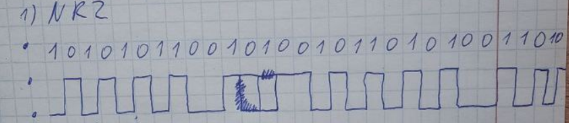 1) NRZ
1 0 1 0 1 0 1 1 0 0 1 0 1 0 0 1 0 1 1 0 1 0 1 0 0 1 1 0 1 0